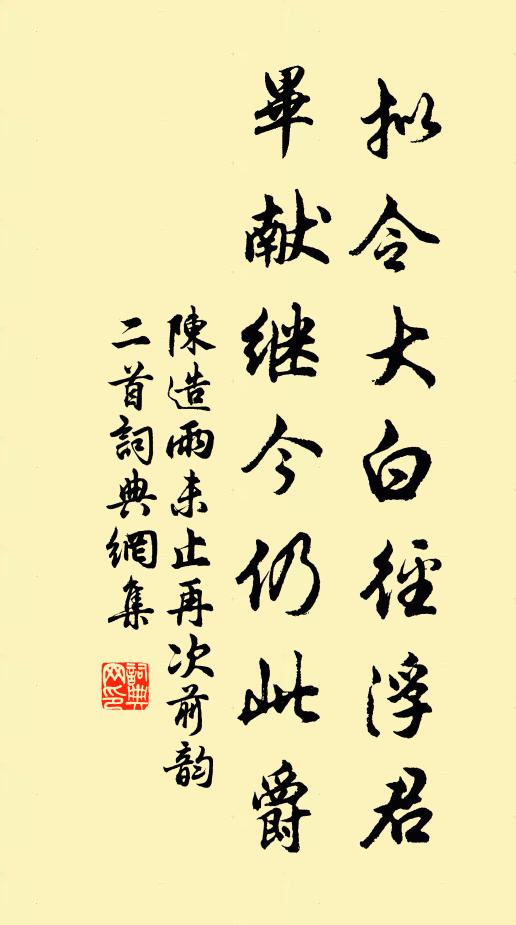 拟令大白径浮君
畢献继今仍此爵
陳造雨未止再次前韵
二首詞典網集
詞典网印